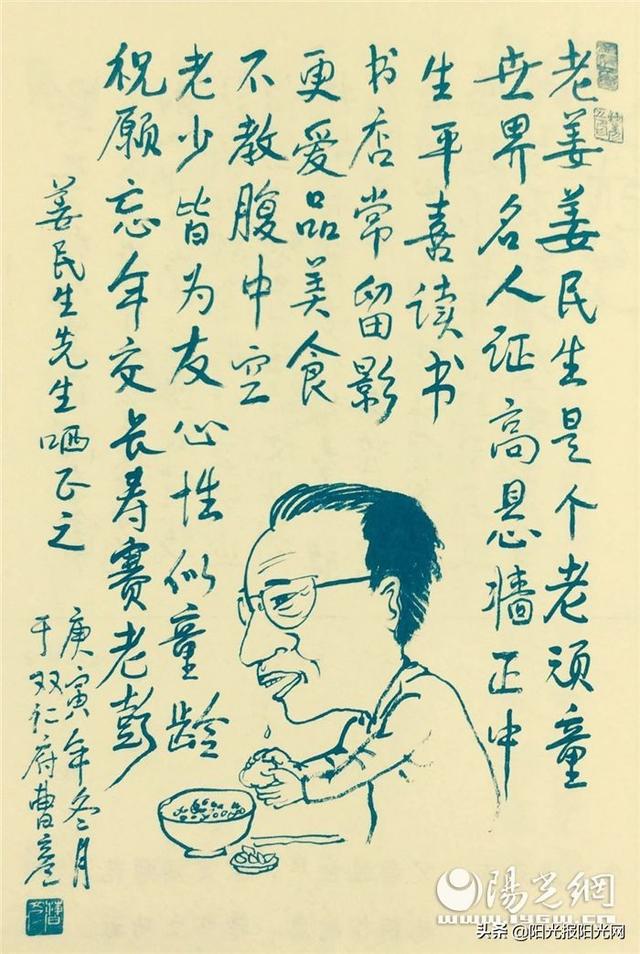 老姜姜民生是个老顽童
世界名人证高悬墙正中
生平喜读书
书店常留影
更爱品美食
不教腹中空
老少皆为友心性似童龄
祝愿忘年交长寿赛老彭
姜民生先生哂正之
庚寅年冬月
于双仁府曹彦
陽光網
www.iygw.cn
头条 @阳光报阳光网